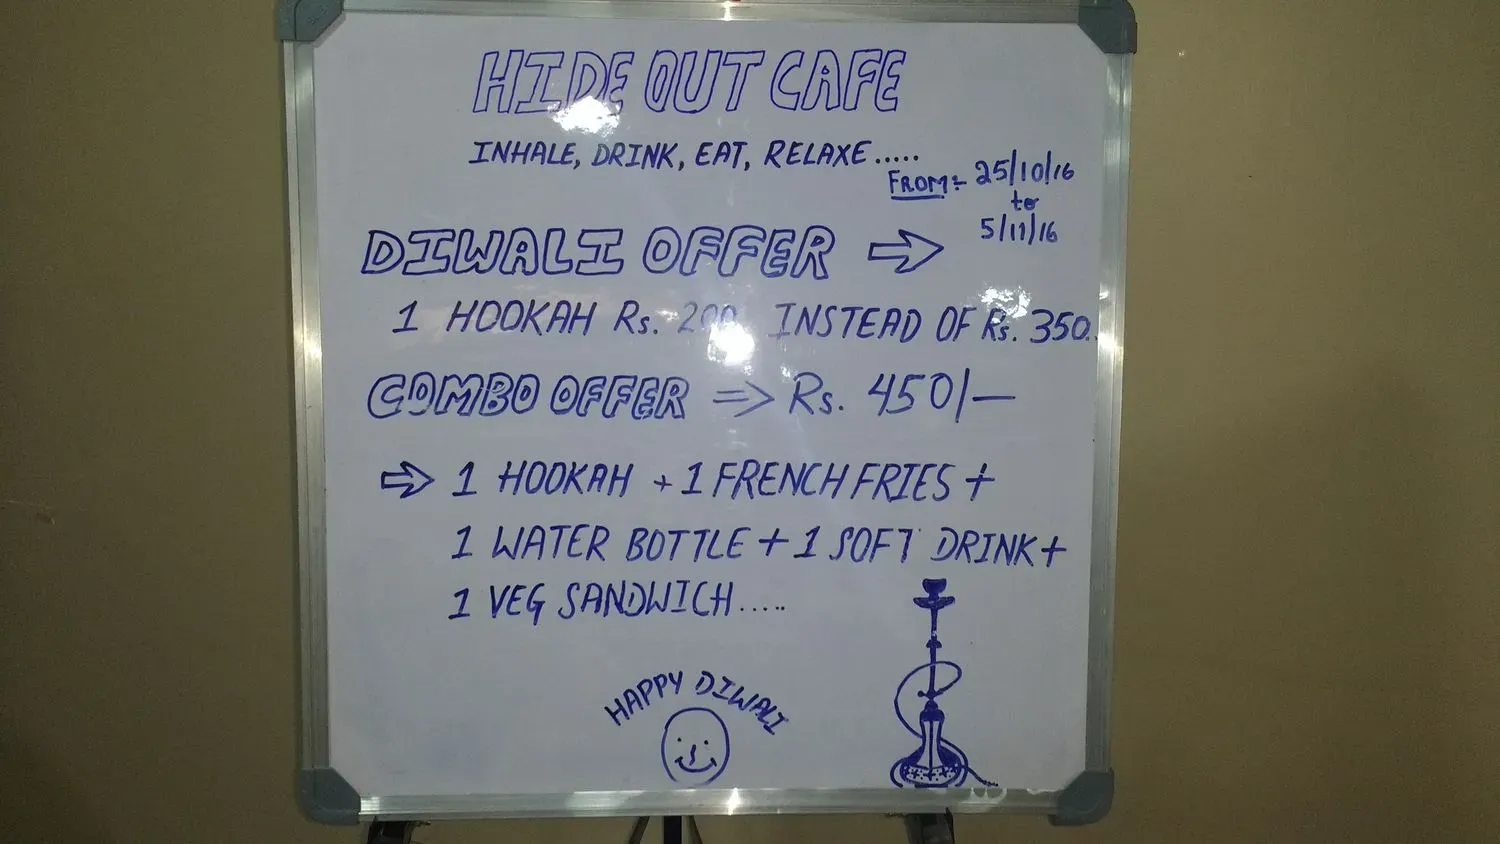 HIDE OUT CAFE
INHALE, DRINK, EAT, RELAXE.....
FROM:- 25/10/16
to
5/11/16
DIWALI OFFER
1 HOOKAH Rs. 200 INSTEAD OF Rs. 350..
COMBO OFFER => Rs. 450/-
1 HOOKAH + 1 FRENCH FRIES +
1 WATER BOTTLE + 1 SOFT DRINK +
1 VEG SANDWICH.....
HAPPY DIWALI